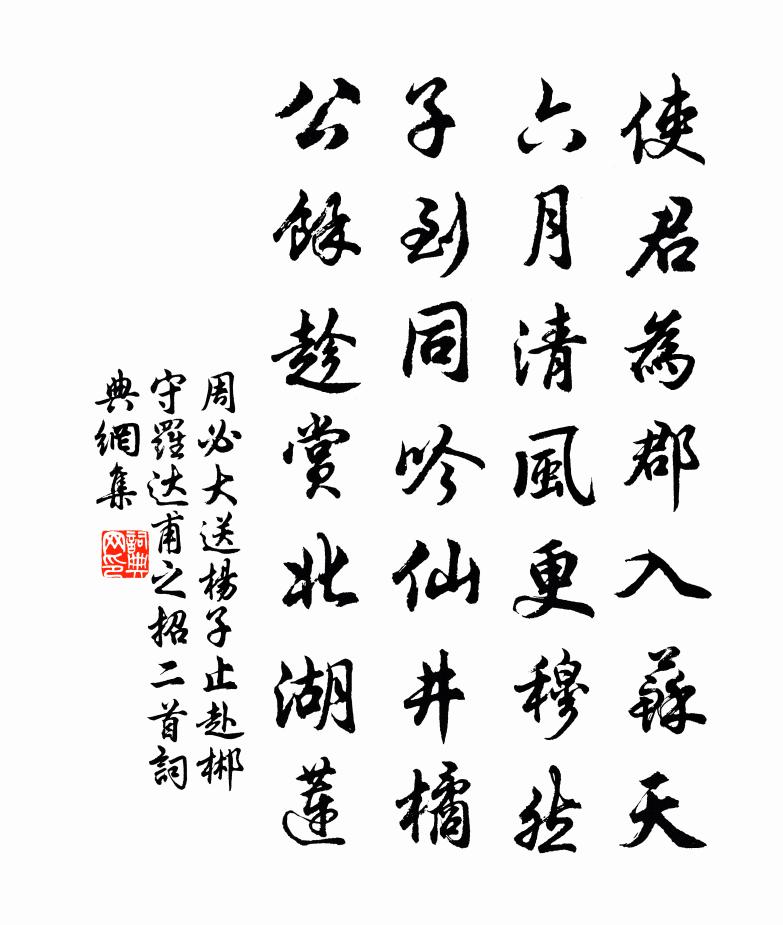 使君為郡入蘇天
六月清風更穆然
子到同吟仙井橘
公餘趁賞北湖蓮
周必大送楊子止赴郴
守羅达甫之招二首詞
典網集
詞典
网印